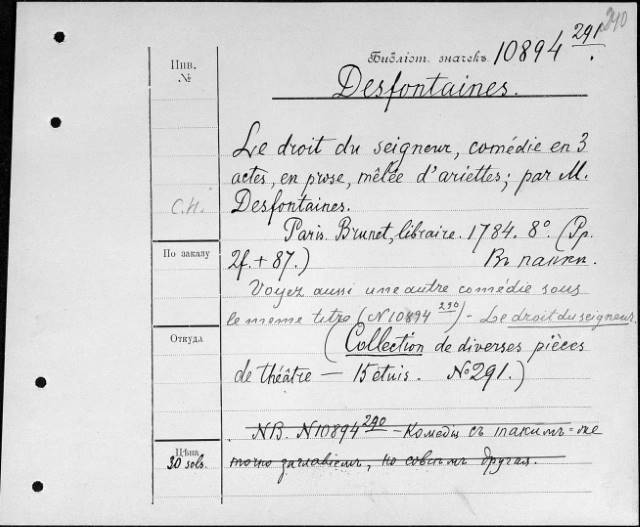 240
Инв. №
Библіот. значекъ. 10894 291.
Desfontaines.
Le droit du seigneur, comédie en 3
actes, en prose, mêlée d'ariettes; par M.
С.Н.
Desfontaines.
Paris. Brunet, libraire. 1784. 8º. (Pp.
По заказу
2f. + 87.)
Въ папки.
Voyez aussi une autre comédie sous
le meme titre (N 10894 290) - Le droit du seigneur.
Откуда
(Collection de diverses pièces
de théâtre — 15 etuis. Nº 291.)
NB. N 10894 290 - Комедія съ такимъ-же
Цѣна
30 sols.
точно заглавіемъ, но совсѣмъ другая.